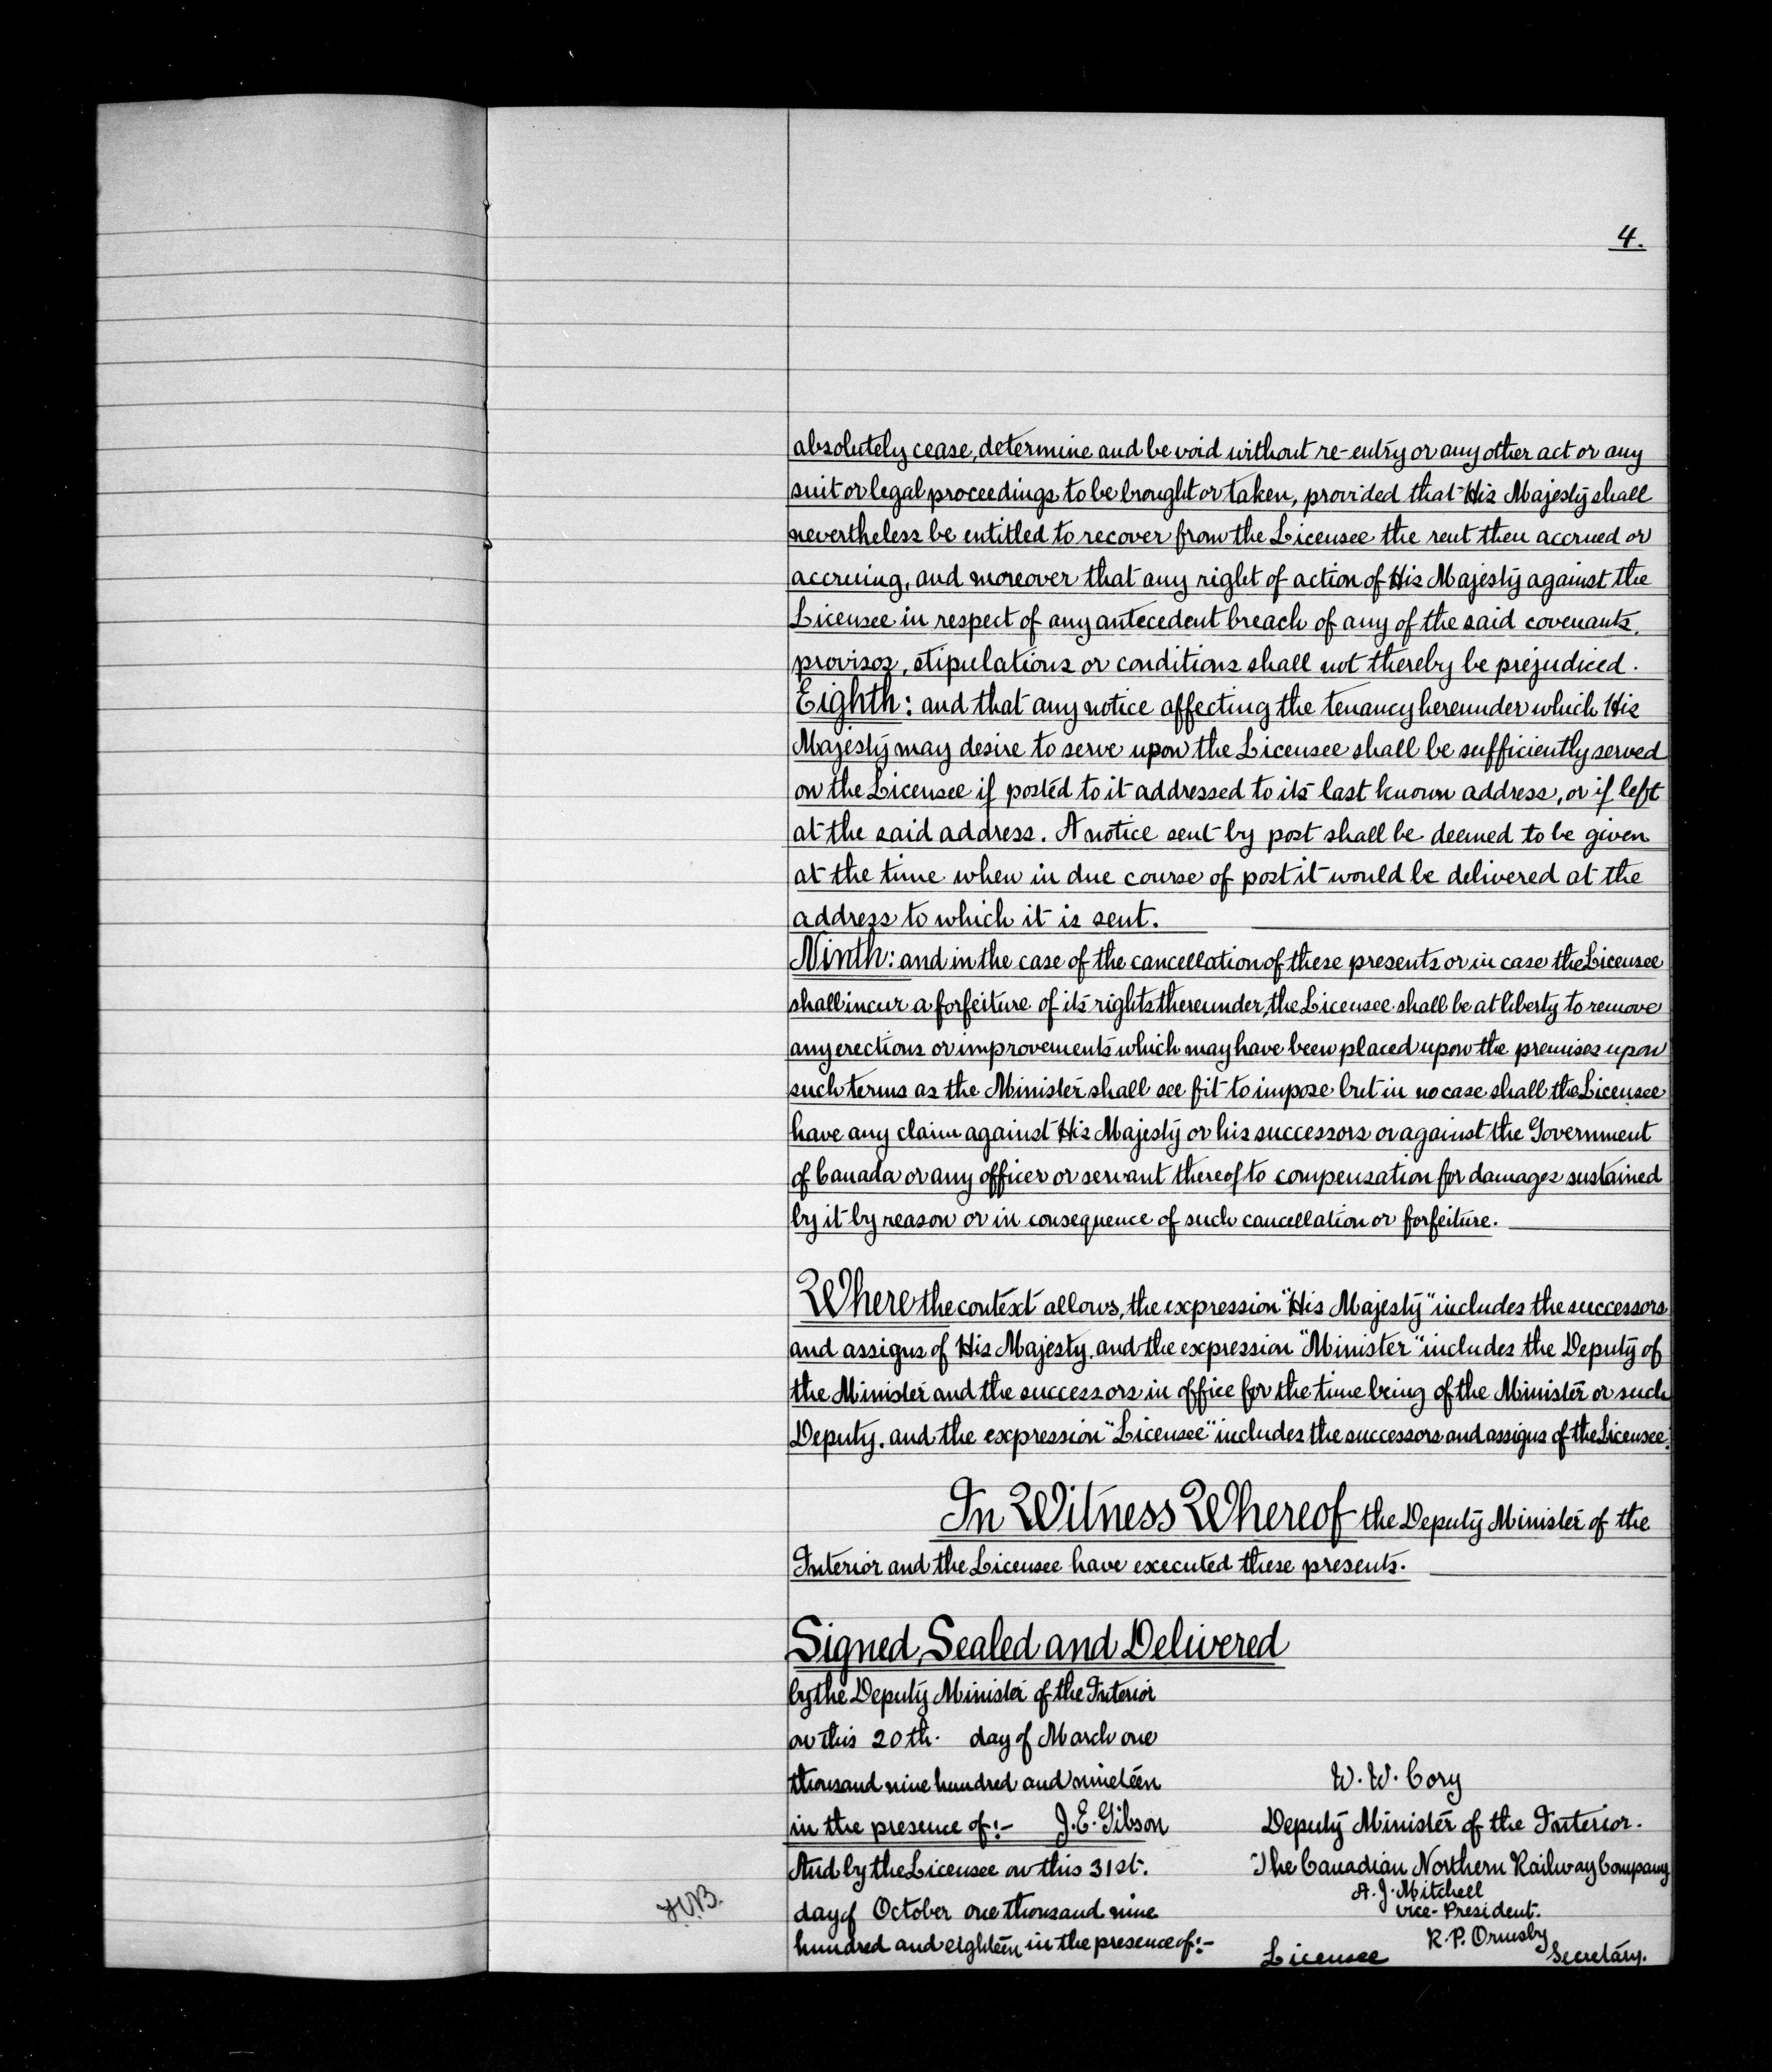 4.
absolutely cease, determine and be void without re-entry or any other act or any
suit or legal proceedings to be brought or taken, provided that His Majesty shall
nevertheless be entitled to recover from the Licensee the rent then accrued or
accruing, and moreover that any right of action of His Majesty against the
Licensee in respect of any antecedent breach of any of the said covenants,
provisos, stipulations or conditions shall not thereby be prejudiced.
Eighth: and that any notice affecting the tenancy hereunder which His
Majesty may desire to serve upon the Licensee shall be sufficiently served
on the Licensee if posted to it addressed to its last known address, or if left
at the said address. A notice sent by post shall be deemed to be given
at the time when in due course of post it would be delivered at the
address to which it is sent.
Ninth: and in the case of the cancellation of these presents or in case the Licensee
shall incur a forfeiture of its rights thereunder, the Licensee shall be at liberty to remove
any erections or improvements which may have been placed upon the premises upon
such terms as the Minister shall see fit to impose but in no case shall the Licensee
have any claim against His Majesty or his successors or against the Government
of Canada or any officer or servant thereof to compensation for damages sustained
by it by reason or in consequence of such cancellation or forfeiture.
Where the context allows, the expression "His Majesty" includes the successors
and assigns of His Majesty, and the expression "Minister" includes the Deputy of
the Minister and the successors in office for the time being of the Minister or such
Deputy, and the expression "Licensee" includes the successors and assigns of the Licensee.
In Witness Whereof the Deputy Minister of the
Interior and the Licensee have executed these presents.
Signed, Sealed and Delivered
by the Deputy Minister of the Interior
on this 20th. day of March one
thousand nine hundred and nineteen
in the presence of:- J.E. Gibson
W. W. Cory
Deputy Minister of the Interior.
And by the Licensee on this 31st.
day of October one thousand nine
hundred and eighteen in the presence of:-
The Canadian Northern Railway Company
A. J. Mitchell
Vice-President.
R. P. Ormsby
Licensee Secretary.